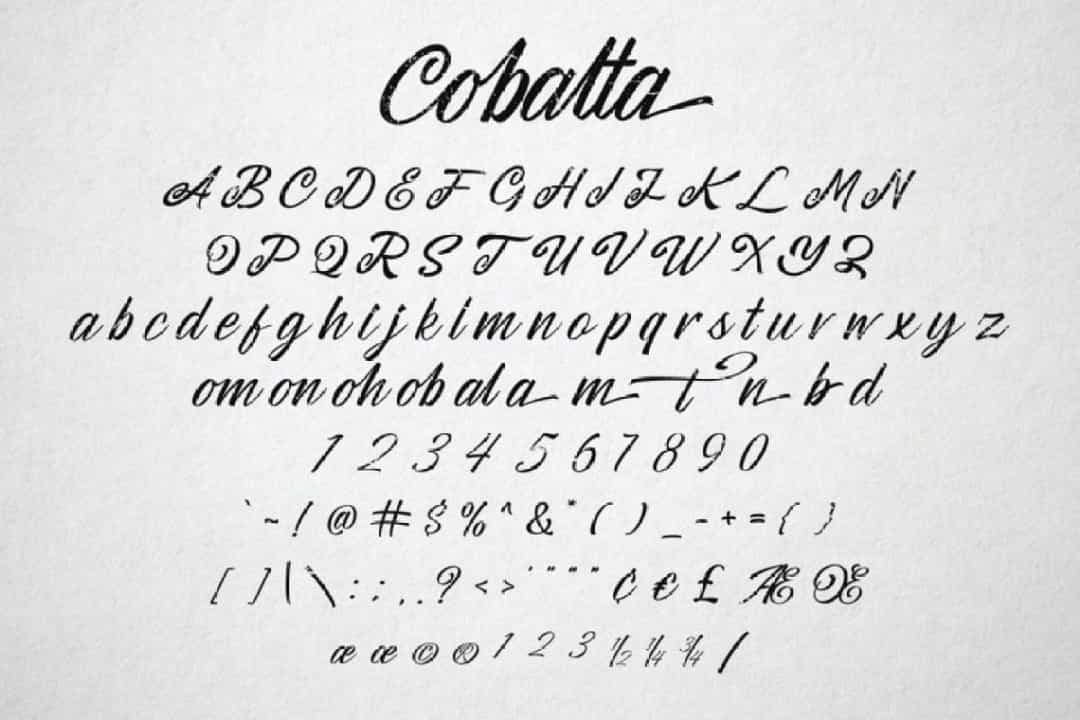 Cobalta
A B C D E F G H I J K L M N
O P Q R S T U V W X Y Z
a b c d e f g h i j k l m n o p q r s t u v w x y z
om on oh ob al a m t n b d
1 2 3 4 5 6 7 8 9 0
` ~ ! @ # $ % ^ & * ( ) _ - + = { }
[ ] | \ : ; , . ? < > ' " " " ¢ € £ Æ Œ
æ œ © ® 1 2 3 ½ ¼ ¾ /